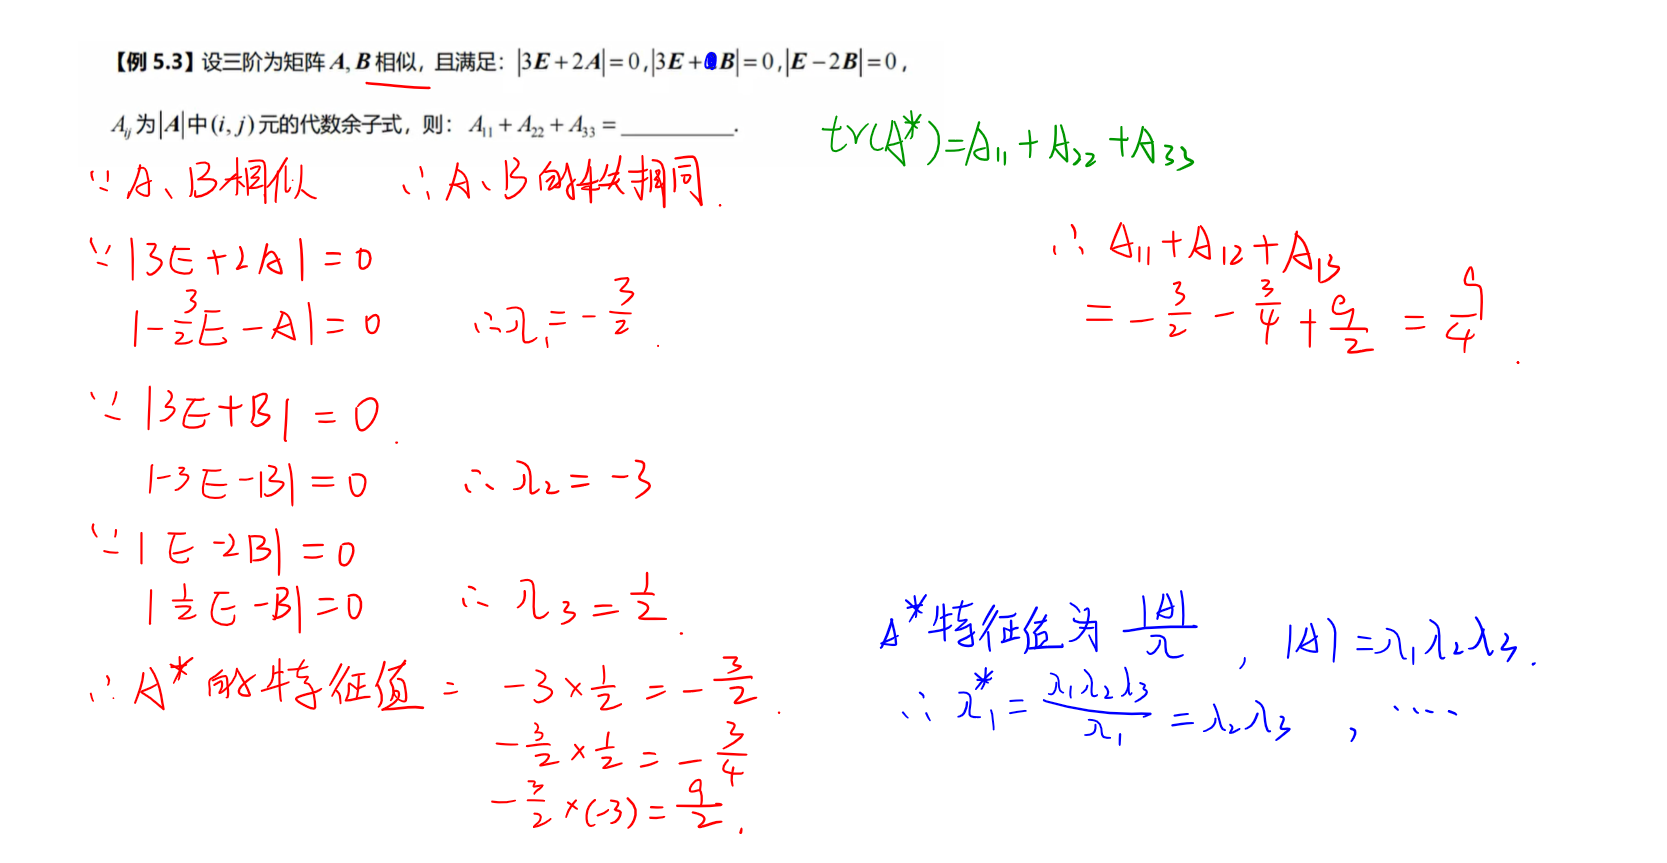 【例 5.3】设三阶为矩阵 A, B 相似，且满足：|3E+2A|=0,|3E+B|=0,|E−2B|=0，
A_{ij} 为|A|中(i, j)元的代数余子式，则：A_{11}+A_{22}+A_{33}=________.
tr(A*)=A_{11}+A_{22}+A_{33}
∵ A、B相似 ∴ A、B的λ相同.
∵ |3E+2A|=0
|-\frac{3}{2}E-A|=0 ∴λ_1=-\frac{3}{2}.
∵ |3E+B|=0.
|-3E-B|=0 ∴λ_2=-3
∵ |E-2B|=0
|\frac{1}{2}E-B|=0 ∴λ_3=\frac{1}{2}.
∴ A*的特征值=-3×\frac{1}{2}=-\frac{3}{2}.
-\frac{3}{2}×\frac{1}{2}=-\frac{3}{4}
-\frac{3}{2}×(-3)=\frac{9}{2}.
∴ A_{11}+A_{12}+A_{13}
=-\frac{3}{2}-\frac{3}{4}+\frac{9}{2}=\frac{9}{4}.
A*特征值为\frac{|A|}{λ}, |A|=λ_1λ_2λ_3.
∴λ_1^*=\frac{λ_1λ_2λ_3}{λ_1}=λ_2λ_3, ....